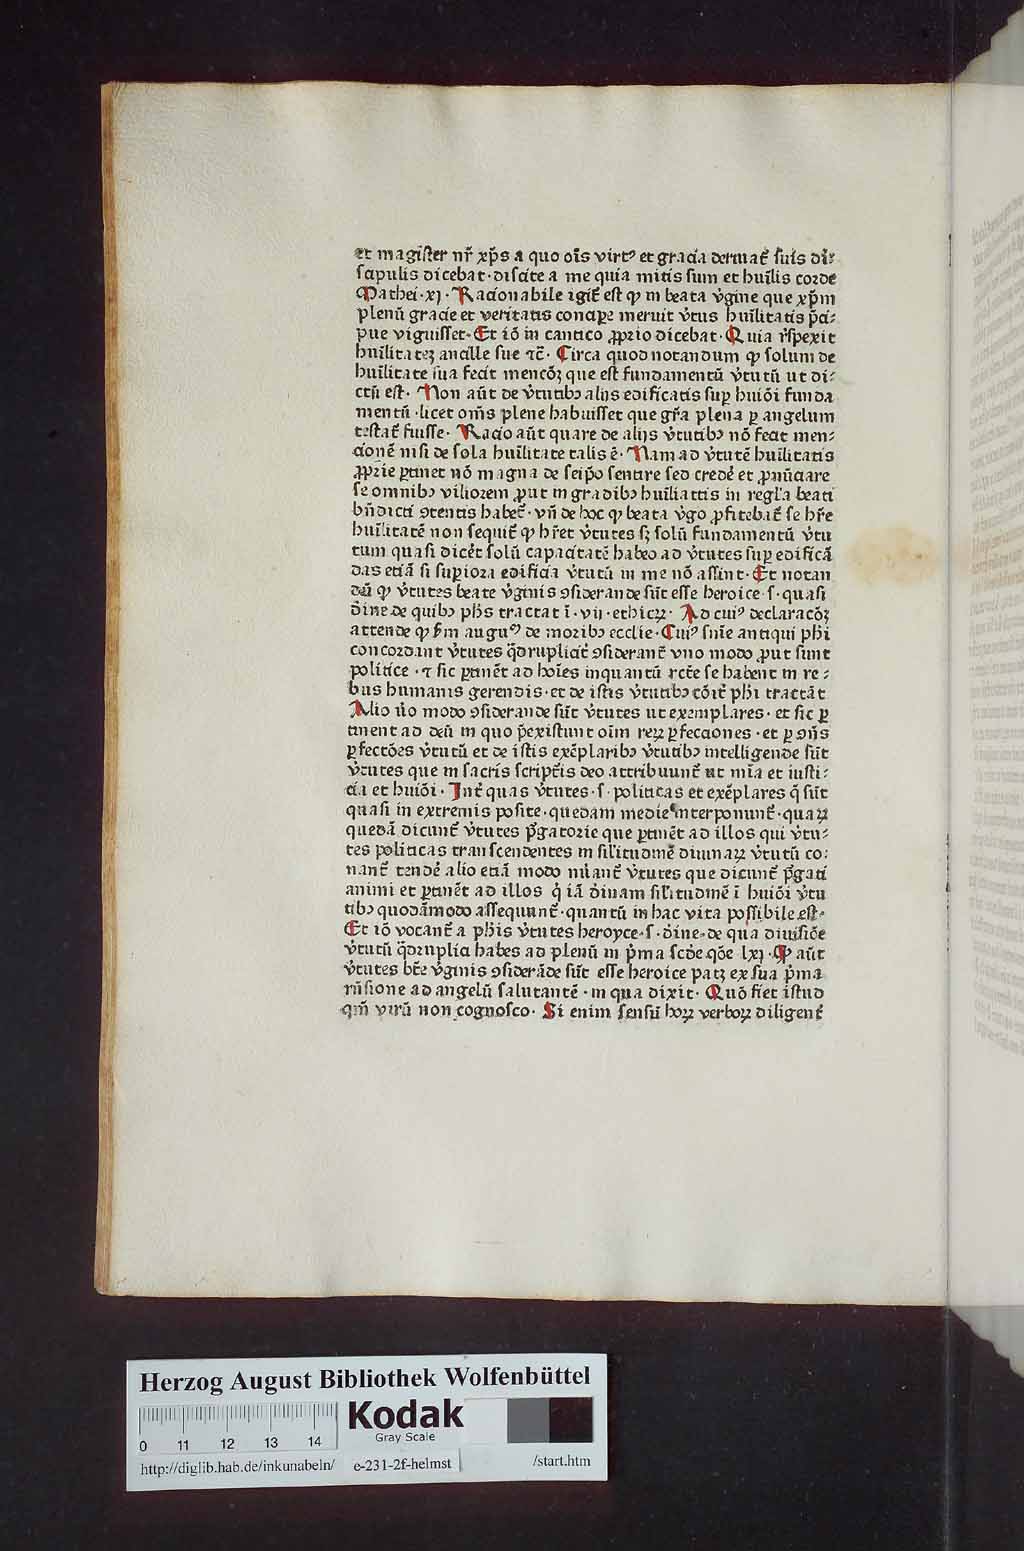 et magister nr̄ xp̄s a quo oīs virtꝰ et gracia deriuat᷑ suis di⸗
scipulis dicebat · discite a me quia mitis sum et huīlis corde
Mathei · xj · Racionabile igit᷑ est ꝙ in beata v̓gine que xp̄m
plenū gracie et veritatis concipe meruit v̓tus huīlitatis p̄ci⸗
pue viguisset · Et iō in cantico ꝓprio dicebat · Quia r̄spexit
huīlitateꝫ ancille sue ⁊c̄ · Circa quod notandum ꝙ solum de
huīlitate sua fecit mencōꝫ que est fundamentū v̓tutū ut di⸗
ctū est · Non aūt de v̓tutibꝫ alijs edificatis sup huiōi funda
mentū · licet om̄s plene habuisset que gr̄a plena ꝑ angelum
testat᷑ fuisse · Racio aūt quare de alijs v̓tutibꝫ nō fecit men⸗
cionē nisi de sola huīlitate talis ē · Nam ad v̓tutē huīlitatis
ꝓprie ꝑtinet nō magna de seip̄o sentire sed crede᷑ et ꝓnūciare
se omnibꝫ viliorem ꝓut in gradibꝫ huīliattis in regl̓a beati
bn̄dicti ꝯtentis habet᷑ · vn̄ de hoc ꝙ beata v̓go ꝓfitebat᷑ se hr̄e
huīlitatē non sequit᷑ ꝙ hr̄et v̓tutes sꝫ solū fundamentū v̓tu
tum quasi dicet᷑ solū capacitatē habeo ad v̓tutes sup edificā
das etiā si supiora edificia v̓tutū in me nō assint · Et notan
dū ꝙ v̓tutes beate v̓ginis ꝯsiderande sūt esse heroice · s · quasi
d̓ine de quibꝫ ph̄s tractat ī · vij · ethicꝝ · Ad cuiꝰ declaracōꝫ
attende ꝙ ẜm auguꝰ de moribꝫ ecclie · Cuiꝰ sn̄ie antiqui ph̄i
concordant v̓tutes q̄drupliciter ꝯsiderant᷑ vno modo ꝓut sunt
politice · ⁊ sic ꝑtinēt ad hoīes inquantū rct̄e se habent in re⸗
bus humanis gerendis · et de istis v̓tutibꝫ cōit᷑ ph̄i tractāt
Alio v̓o modo ꝯsiderande sūt v̓tutes ut exemplares · et sic ꝑ
tinent ad deū in quo p̄existunt oīm reꝝ ꝑfectiones · et ꝑ ꝯn̄s
ꝑfectōes v̓tutū et de istis exēplaribꝫ v̓tutibꝫ intelligende sūt
v̓tutes que in sacris scriptis deo attribuunt᷑ ut mīa et iusti⸗
cia et huiōi · Int᷑ quas v̓tutes · s · politicas et exēplares q̄ sūt
quasi in extremis posite · quedam medie interponunt᷑ · quaꝝ
quedā dicunt᷑ v̓tutes p̄gatorie que ꝑtinēt ad illos qui v̓tu⸗
tes politicas transcendentes in sil̓itudinē diuinaꝝ v̓tutū co⸗
nant᷑ tende᷑ alio etiā modo nūant᷑ v̓tutes que dicunt᷑ p̄gati
animi et ꝑtinēt ad illos q̓ iā d̓inam sil̓itudinē ī huiōi v̓tu
tibꝫ quodāmodo assequunt᷑ · quantū in hac vita possibile est ·
Et iō vocant᷑ a ph̄is v̓tutes heroyce · s · d̓ine · de qua diuisiōe
v̓tutū q̄druplici habes ad plenū in p̓ma scd̓e qōe lxj · ꝙ aūt
v̓tutes bt̄e v̓ginis ꝯsiderāde sūt esse heroice patꝫ ex sua p̓ma
rn̄sione ad angelū salutantē · in qua dixit · Quō fiet istud
qm̄ virū non cognosco · Si enim sensū hoꝝ verboꝝ diligent᷑
Herzog August Bibliothek Wolfenbüttel
0 11 12 13 14
Kodak
Gray Scale
http://diglib.hab.de/inkunabeln/ e-231-2f-helmst /start.htm